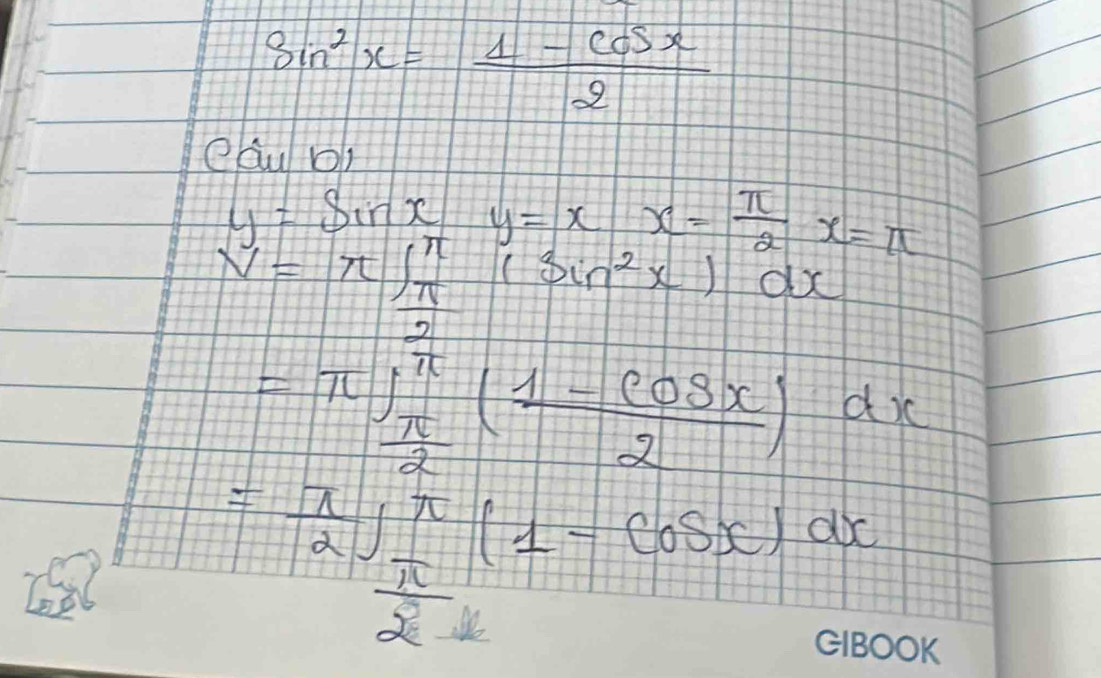 sin² x = \frac{1 - cos x}{2}
Câu b)
y = sin x y = x x = \frac{π}{2} x = π
V = π ∫_{\frac{π}{2}}^{π} (sin² x) dx
= π ∫_{\frac{π}{2}}^{π} (\frac{1 - cos x}{2}) dx
= \frac{π}{2} ∫_{\frac{π}{2}}^{π} (1 - cos x) dx
GIBOOK